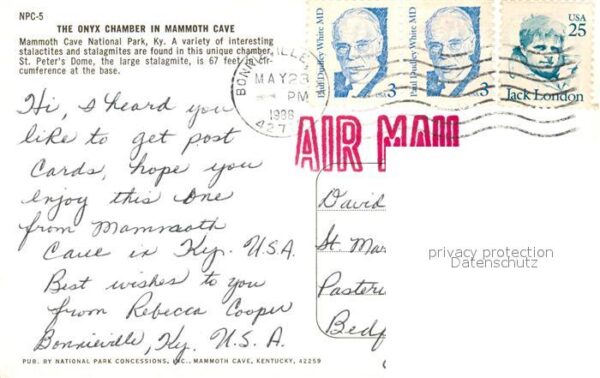 NPC-5
THE ONYX CHAMBER IN MAMMOTH CAVE
Mammoth Cave National Park, Ky. A variety of interesting
stalactites and stalagmites are found in this unique chamber.
St. Peter's Dome, the large stalagmite, is 67 feet in cir-
cumference at the base.
BONNIEVILLE,
MAY 23
PM
427
Paul Dudley White MD
3
Paul Dudley White MD
3
USA
25
Jack London
AIR MAIL
Hi, I heard you
like to get post
Cards, hope you
enjoy this one
from Mammoth
Cave in Ky. U.S.A.
Best wishes to you
from Rebecca Cooper
Bonnieville, Ky. U.S.A.
David
St. Mar
Paster
Bedf
privacy protection
Datenschutz
PUB. BY NATIONAL PARK CONCESSIONS, INC., MAMMOTH CAVE, KENTUCKY, 42259